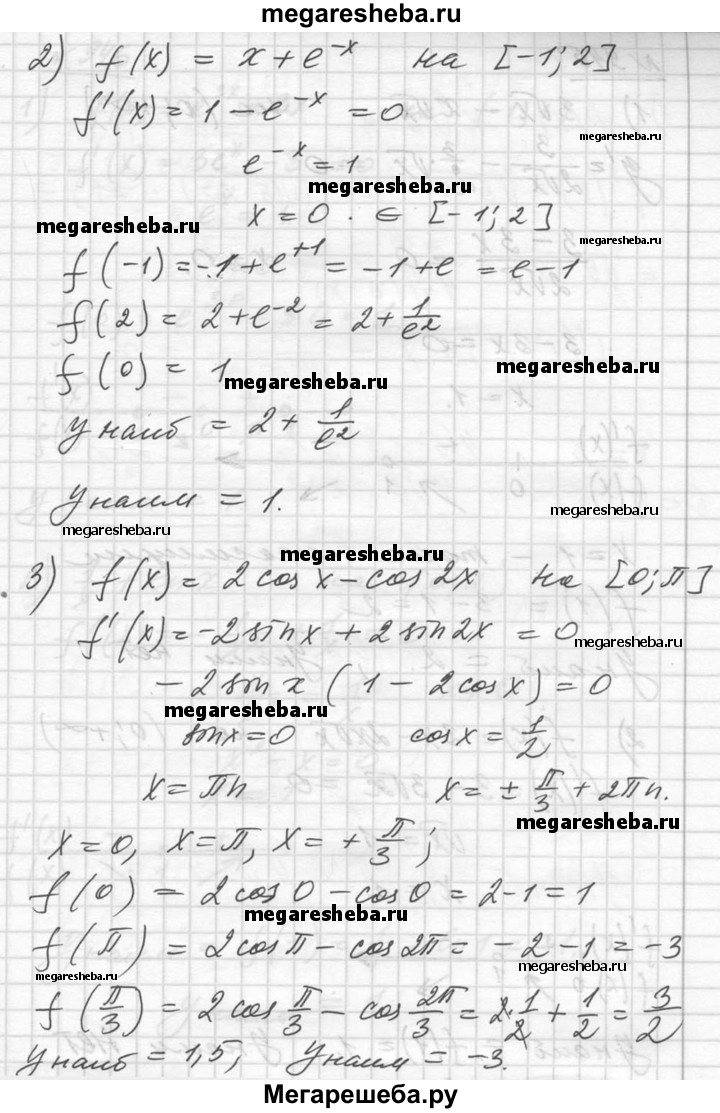 megaresheba.ru
2) f(x) = x + e^{-x} на [-1; 2]
f'(x) = 1 - e^{-x} = 0
megaresheba.ru
e^{-x} = 1
megaresheba.ru
x = 0 . ∈ [-1; 2]
megaresheba.ru
f(-1) = -1 + e^{+1} = -1 + e = e - 1
f(2) = 2 + e^{-2} = 2 + 1/e²
megaresheba.ru
f(0) = 1
megaresheba.ru
y наиб = 2 + 1/e²
megaresheba.ru
y наим = 1.
megaresheba.ru
megaresheba.ru
3) f(x) = 2 cos x - cos 2x на [0; π]
f'(x) = -2 sin x + 2 sin 2x = 0
megaresheba.ru
-2 sin x (1 - 2 cos x) = 0
megaresheba.ru
sin x = 0 cos x = 1/2
x = πn x = ± π/3 + 2πn.
megaresheba.ru
x = 0, x = π, x = + π/3;
f(0) = 2 cos 0 - cos 0 = 2 - 1 = 1
megaresheba.ru
f(π) = 2 cos π - cos 2π = -2 - 1 = -3
megaresheba.ru megaresheba.ru
f(π/3) = 2 cos π/3 - cos 2π/3 = 2 · 1/2 + 1/2 = 3/2
y наиб = 1,5, y наим = -3.
Мегарешеба.ру